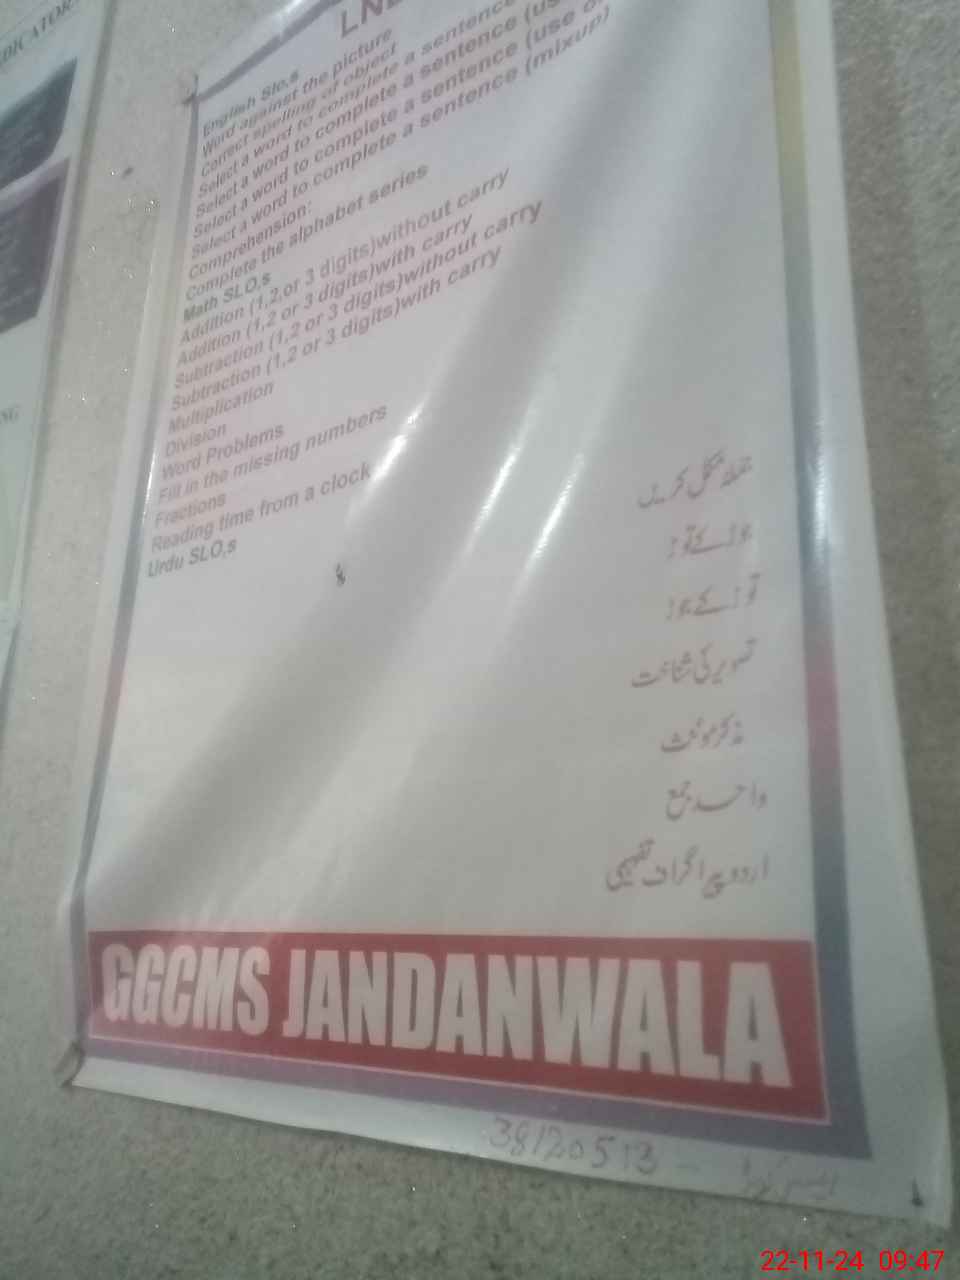 DICATOR
NG
English Slo,s
Word against the picture
Correct spelling of object
Select a word to complete a sentence
Select a word to complete a sentence
Select a word to complete a sentence (use
Select a word to complete a sentence (mixup)
Comprehension:
Complete the alphabet series
Math SLO,s
Addition (1,2,or 3 digits)without carry
Addition (1,2 or 3 digits)with carry
Subtraction (1,2 or 3 digits)without carry
Subtraction (1,2 or 3 digits)with carry
Multiplication
Division
Word Problems
Fill in the missing numbers
Fractions
Reading time from a clock
Urdu SLO,s
مکمل کریں
جوڑ کے توڑ
توڑ کے جوڑ
تصویر کی شناخت
مذکر مونث
واحد جمع
اردو پیراگراف تفہیمی
GGCMS JANDANWALA
38120513
22-11-24 09:47